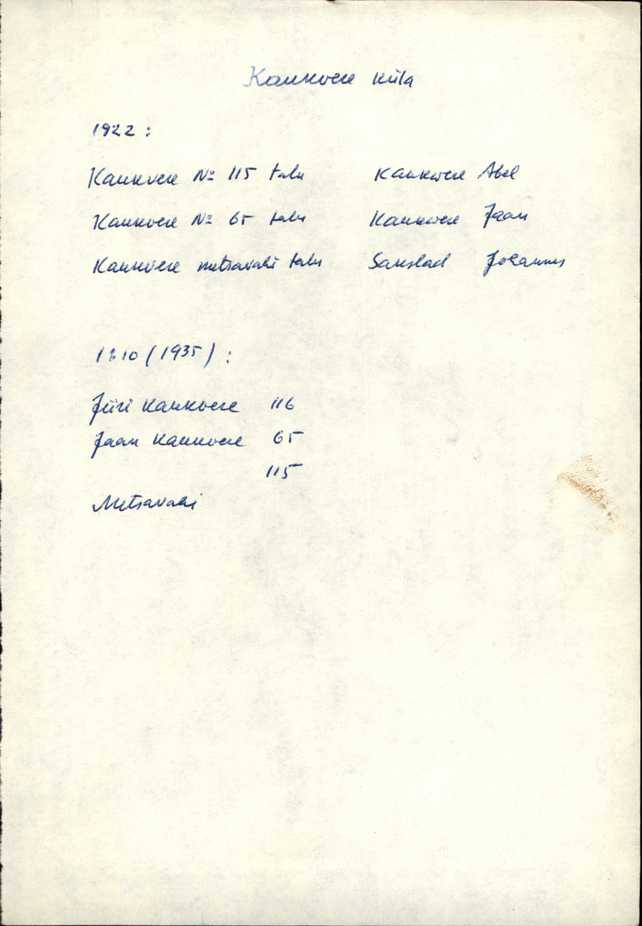 Kaukvere küla
1922:
Kaukvere № 115 talu Kaukvere Abel
Kaukvere № 65 talu Kaukvere Jaan
Kaukvere metsavahi talu Johannes
1:10 (1935):
Jüri Kaukvere 116
Jaan Kaukvere 65
115
Metsavahi